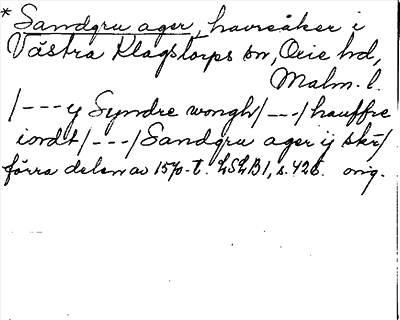 * Sandgru ager, havreåker i
Västra Klagstorps sn, Oxie hd,
Malm. l.
/---y Syndre wongh/---/hauffre
iordt/---/Sandgru ager ij skr/
förra delen av 1570-t. LSLB1, s. 426. orig.